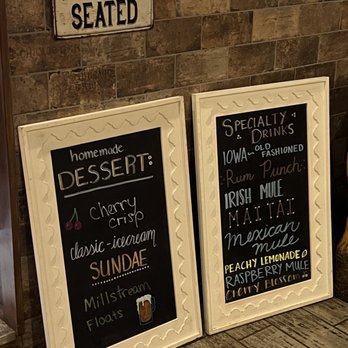 SEATED
homemade
DESSERT:
Cherry
crisp
classic-icecream
SUNDAE
Millstream
Floats
SPECIALTY
DRINKS
IOWA OLD
FASHIONED
Rum Punch
IRISH MULE
MAI TAI
Mexican
mule
PEACHY LEMONADE
RASPBERRY MULE
CHERRY BLOSSOM